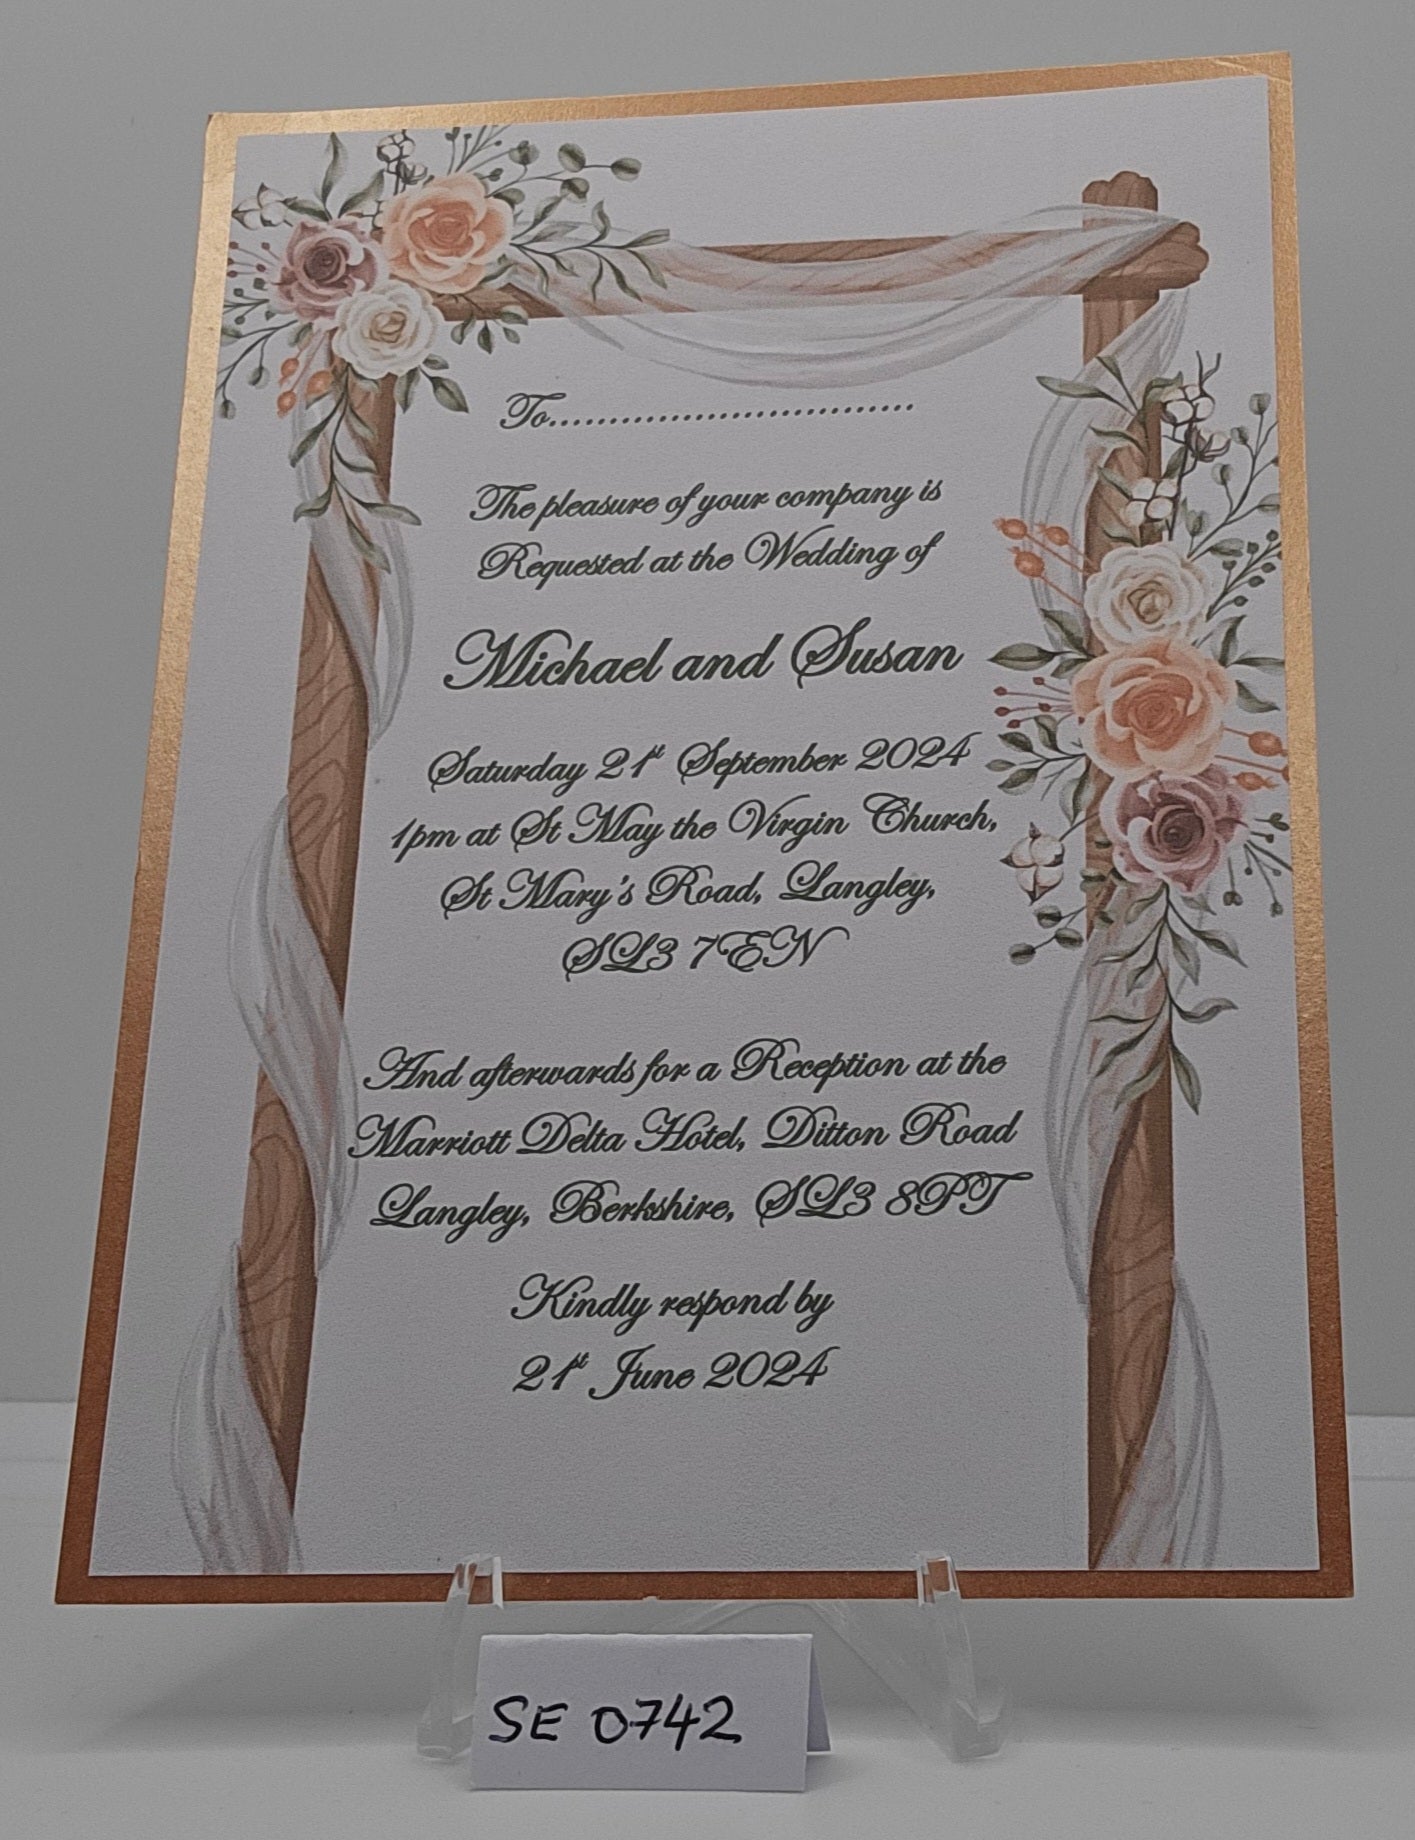 To..............................
The pleasure of your company is
Requested at the Wedding of
Michael and Susan
Saturday 21st September 2024
1pm at St May the Virgin Church,
St Mary's Road, Langley,
SL3 7EN
And afterwards for a Reception at the
Marriott Delta Hotel, Ditton Road
Langley, Berkshire, SL3 8PT
Kindly respond by
21st June 2024
SE 0742